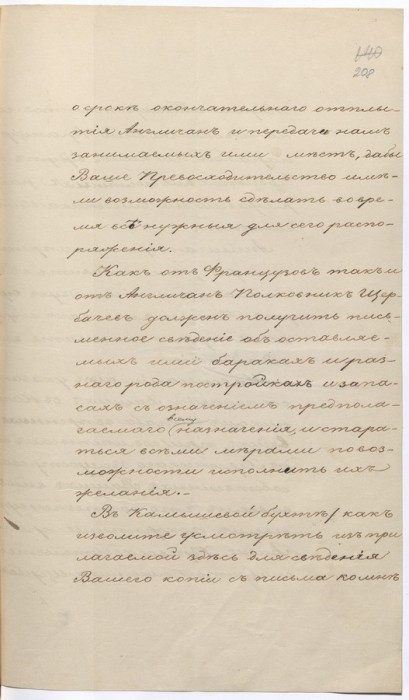 140
208
о срокѣ окончательнаго отплы-
тія Англичанъ и передачи намъ
занимаемыхъ ими мѣстъ, дабы
Ваше Превосходительство имѣ-
ли возможность сдѣлать во вре-
мя всѣ нужныя для сего распо-
ряженія.
Какъ отъ Французовъ такъ и
отъ Англичанъ Полковникъ Щер-
бачевъ долженъ получить пись-
менное свѣденіе объ оставляе-
мыхъ ими баракахъ и раз-
наго рода постройкахъ и запа-
сахъ съ означеніемъ предпола-
гаемаго имъ назначенія, и старать-
ться всѣми мѣрами по воз-
можности исполнить ихъ
желанія.-
Въ Камышевой бухтѣ / какъ
изволите усмотрѣть изъ при
лагаемой здѣсь для свѣденія
Вашего копіи съ письма ко мнѣ